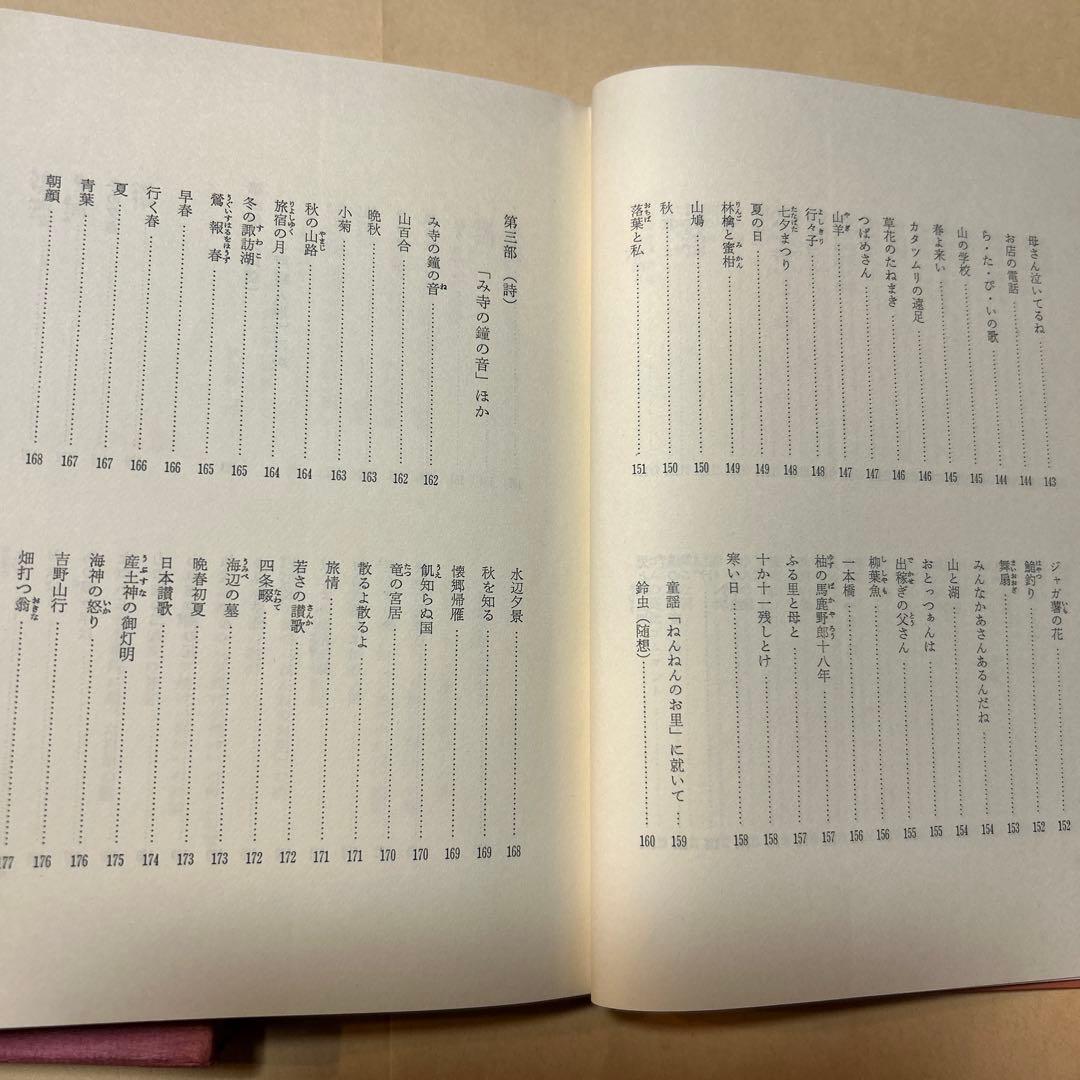 母さん泣いてるね……143
お店の電話……144
ち・た・ぴ・いの歌……144
山の学校……145
春よ来い……145
カタツムリの遠足……146
草花のたねまき……146
つばめさん……147
山羊……147
行々子……148
七夕まつり……148
夏の日……149
林檎と蜜柑……149
山鳩……150
秋……150
落葉と私……151
ジャガ薯の花……152
鮠釣り……152
舞扇……153
みんなかあさんあるんだね……154
山と湖……154
おとっつぁんは……155
出稼ぎの父さん……155
柳葉魚……156
一本橋……156
柚の馬鹿野郎十八年……157
ふる里と母と……157
十か十一残しとけ……158
寒い日……158
童謡「ねんねんのお里」に就いて……159
鈴虫(随想)……160
第三部(詩)
「み寺の鐘の音」ほか
み寺の鐘の音……162
山百合……162
晩秋……163
小菊……163
秋の山路……164
旅宿の月……164
冬の諏訪湖……165
鶯報春……165
早春……166
行く春……166
夏……167
青葉……167
朝顔……168
水辺夕景……168
秋を知る……169
懐郷帰雁……169
飢知らぬ国……170
竜の宮居……170
散るよ散るよ……171
旅情……171
若さの讃歌……172
四条畷……172
海辺の墓……173
晩春初夏……173
日本讃歌……174
産土神の御灯明……175
海神の怒り……176
吉野山行……176
畑打つ翁……177